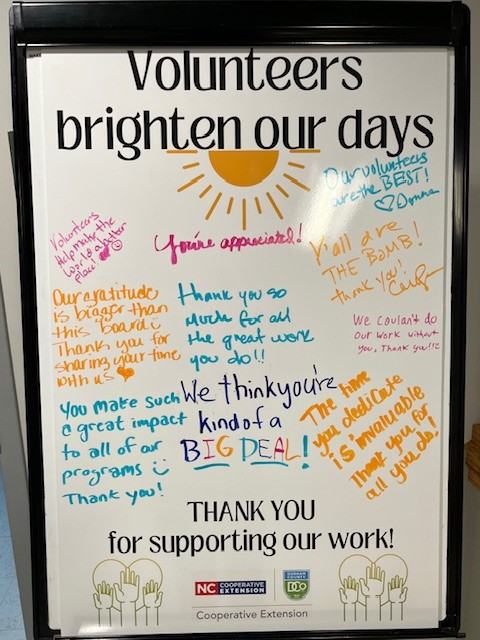 Volunteers
brighten our days
Our volunteers
are the BEST!
Donna
Volunteers
Help make the
World a better
place!
You're appreciated!
Y'all are
THE BOMB!
thank you!
Our gratitude
is bigger than
this board
Thank you for
sharing your time
with us
thank you so
much for all
the great work
you do!!
We couldn't do
our work without
you, Thank you!!!
You make such
a great impact
to all of our
programs
Thank you!
We think you're
kind of a
BIG DEAL!
The time
you dedicate
is invaluable
Thank you for
all you do!
THANK YOU
for supporting our work!
NC COOPERATIVE
EXTENSION
DURHAM
COUNTY
DCO
Cooperative Extension